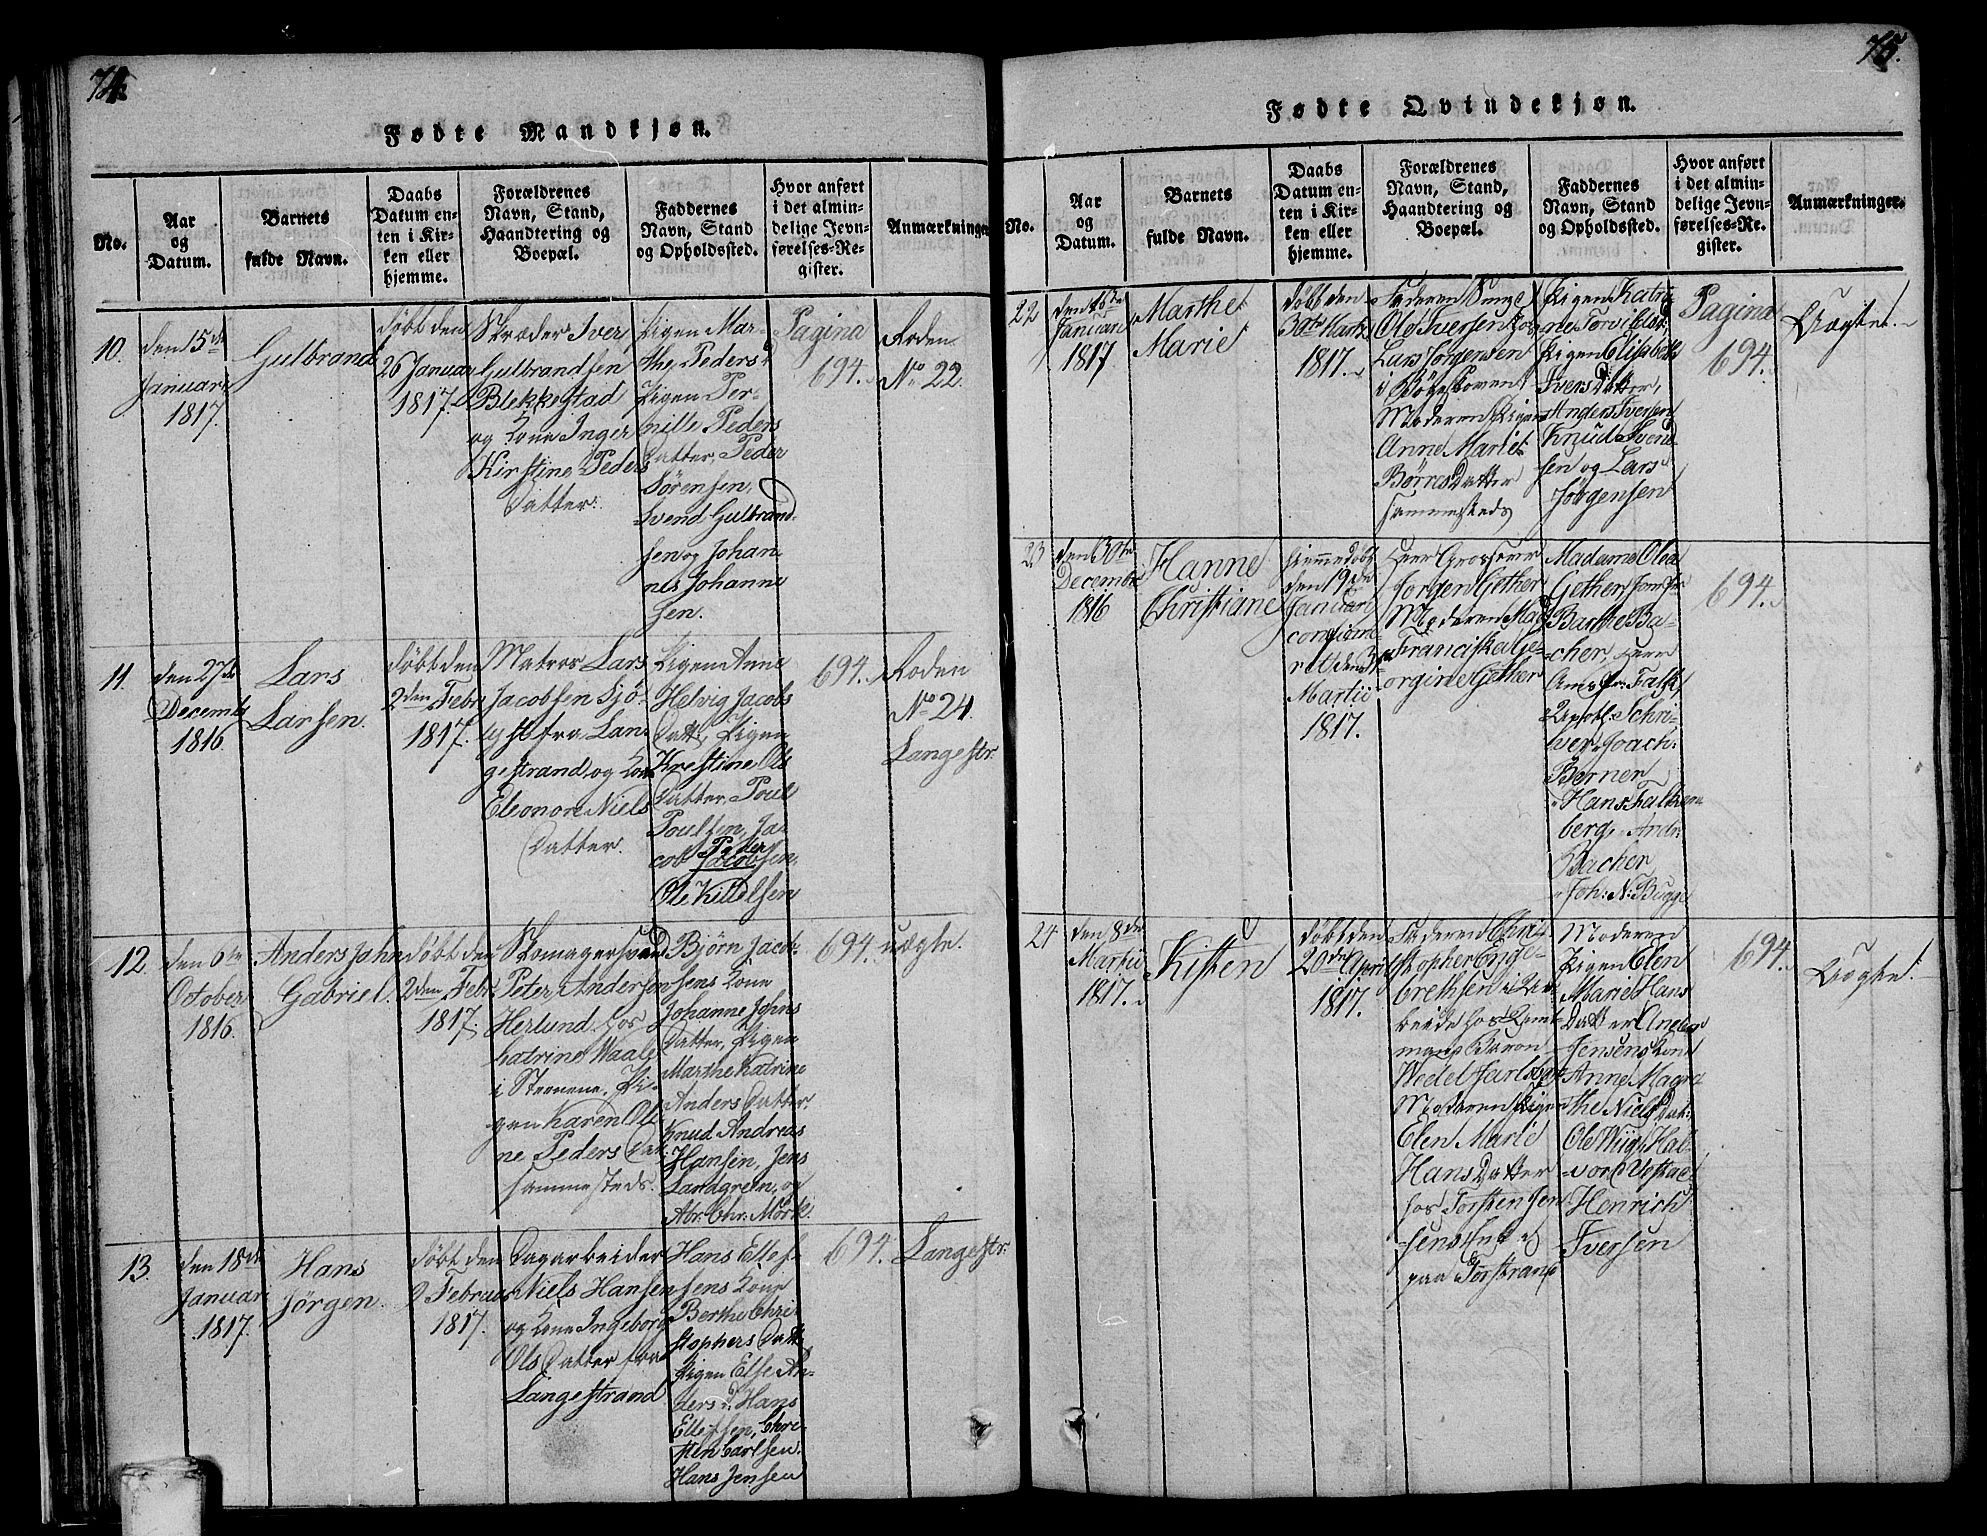 74.
Fødte Mandkjøn.
No.
Aar
og
Datum.
Barnets
fulde Navn.
Daabs
Datum en-
ten i Kir-
ken eller
hjemme.
Forældrenes
Navn, Stand,
Haandtering og
Boepæl.
Faddernes
Navn, Stand
og Opholdssted.
Hvor anført
i det almin-
delige Jevn-
førelses-Re-
gister.
Anmærkninger
10.
den 15de
Januari
1817.
Gulbrand
døbt den
26 Januar
1817.
Skræder Iver
Gulbrandsen
Blekkestad
og Kone Inger
Kirstine Peders
Datter.
Pigen Mar-
the Peders d
Pigen Per-
nille Peders
Datter, Peder
Sørensen,
Svend Gulbrand-
sen og Johan
nes Johanne
sen.
Pagina
694.
Roden
No 22.
11.
den 27de
Decemb
1816.
Lars
Larsen.
døbt den
2den Febr
1817.
Matros Lars
Jacobsen Sjø-
lyst fra Lan-
gestrand, og Kone
Eleonore Niels
Datter.
Pigen Anne
Helvig Jacobs
Datt, Pigen
Krestine Ols
Datter, Poul
Poulsen, Ja-
cob Peder
Jacobsen,
Ole Kittelsen
694.
Roden
No 24.
Langestr.
12.
den 6te
October
1816.
Anders Jahn
Gabriel.
døbt den
2den Febr
1817.
Skomagersvend
Peter Andersen
Herlund hos
Catrine Waale
i Steenene, Pi-
gen Karen Oli
ne Peders Dat
sammesteds.
Bjørn Jacob-
sens Kone
Johanne Johns
Datter, Pigen
Marthe Katrine
Anders Datter,
Knud Andreas
Hansen, Jens
Landgreen, og
Abr. Chr. Mørk.
694.
uægte.
13.
den 18de
Januari
1817.
Hans
Jørgen.
døbt den
9 Februar
1817.
Dagarbeider
Niels Hansen
og Kone Ingeborg
Ols Datter fra
Langestrand
Hans Ellef-
sens Kone
Berthe Chri-
stophers Datt
Pigen Else An-
ders d. Hans
Ellefsen, Chri-
sten Carlsen.
Hans Jensen
694.
Langestr.
75.
Fødte Qvindekjøn.
No.
Aar
og
Datum.
Barnets
fulde Navn.
Daabs
Datum en-
ten i Kir-
ken eller
hjemme.
Forældrenes
Navn, Stand,
Haandtering og
Boepæl.
Faddernes
Navn, Stand
og Opholdssted.
Hvor anført
i det almin-
delige Jevn-
førelses-Re-
gister.
Anmærkninger.
22
den 16de
Januari
1817
Marthe
Marie
døbt den
30te Martz
1817.
Faderen Unge
Ole Iversen hos
Lars Jørgensen
i Bøgeskoven
Moderen Pigen
Anne Marie
Børres Datter
sammesteds
Pigen Katri
ne Torvilds,
Pigen Elisabeth
Ivers Datter,
Anders Iversen
Knud Svend-
sen og Lars
Jørgensen
Pagina
694.
Uægte.
23
den 30te
Decembr
1816
Hanne
Christiane
hjemmedøbt
den 19de
Januari
confirme
ret den
Martii
1817.
Herr Grosserer
Jørgen Gether
Moderen Mad
Franciska Ge-
orgine Gether
Madame Olea
Gether, Jomfr
Barthe Ba-
cher, Herr
Falk,
Apoth. Schri-
ver, Joach.
Berner
Hans Falken-
berg, Andr.
Bacher
Joh. N. Bugge
694.
24
den 8de
Martii
1817.
Kisten
døbt den
20de April
1817.
Faderen Chri-
stopher Enge-
brethsen i Ar-
beide hos Amt-
mand Baron
Wedel Jarlsberg
Moderen Pigen
Elen Marie
Hans Datter
hos Torsten Jen
sens
paa Torstrand
Moderen
Pigen Elen
Marie Hans
Datter,
Jensens Kone
Anne Magre
the Niels Dat:
Ole Wiig, Hal-
vor
Henrich
Iversen
694.
Uægte.